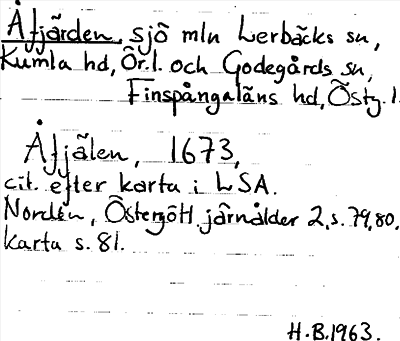 Åfjärden, sjö mln Lerbäcks sn,
Kumla hd, Ör.l. och Godegårds sn,
Finspångaläns hd, Östg.l.
Åfjälen, 1673,
cit. efter karta i LSA.
Nordén, Östergötl. järnålder 2, s. 79, 80,
karta s. 81.
H.B. 1963.